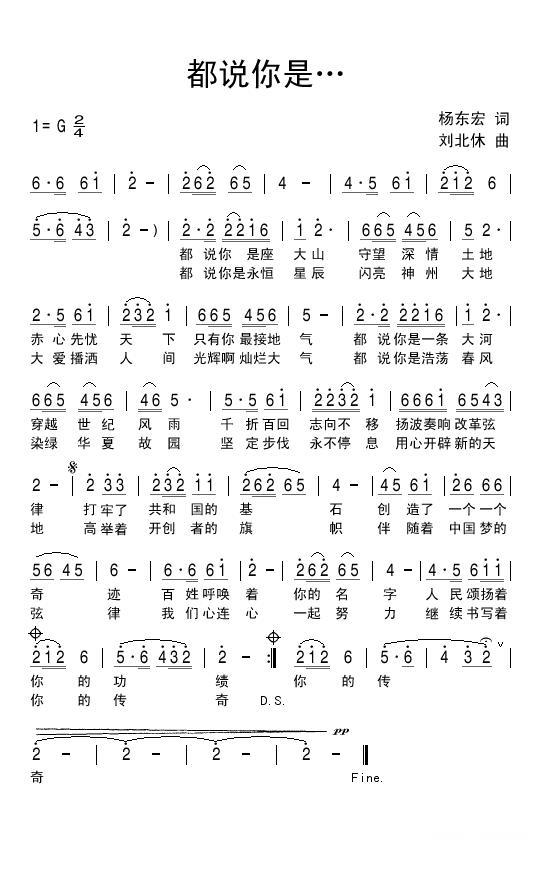 都说你是…
1=G 2/4
杨东宏 词
刘北休 曲
6·6 61 | 2 - | 262 65 | 4 - | 4·5 61 | 212 6 |
5·6 43 | 2 -) | 2·2 2216 | 1 2· | 665 456 | 5 2· |
都 说你 是座 大山 守望 深 情 土地
都 说你是永恒 星辰 闪亮 神 州 大地
2·5 61 | 232 1 | 665 456 | 5 - | 2·2 2216 | 1 2· |
赤 心先忧 天 下 只有你 最接地 气 都 说你是一条 大河
大 爱播洒 人 间 光辉啊 灿烂大 气 都 说你是浩荡 春风
665 456 | 46 5· | 5·5 61 | 2232 1 | 6661 6543 |
穿越 世 纪 风 雨 千 折百回 志向不 移 扬波奏响 改革弦
染绿 华 夏 故 园 坚 定步伐 永不停 息 用心开辟 新的天
2 - | 2 33 | 232 11 | 262 65 | 4 - | 45 61 | 26 66 |
律 打牢了 共和 国的 基 石 创 造了 一个一个
地 高举着 开创 者的 旗 帜 伴 随着 中国梦的
56 45 | 6 - | 6·6 61 | 2 - | 262 65 | 4 - | 4·5 611 |
奇 迹 百 姓呼唤 着 你的 名 字 人 民颂扬着
弦 律 我 们心连 心 一起 努 力 继 续书写着
212 6 | 5·6 432 | 2 - :| 212 6 | 5·6 | 4 3 2 v |
你 的 功 绩 你 的 传
你 的 传 奇 D.S.
pp
2 - | 2 - | 2 - | 2 - ‖
奇 Fine.